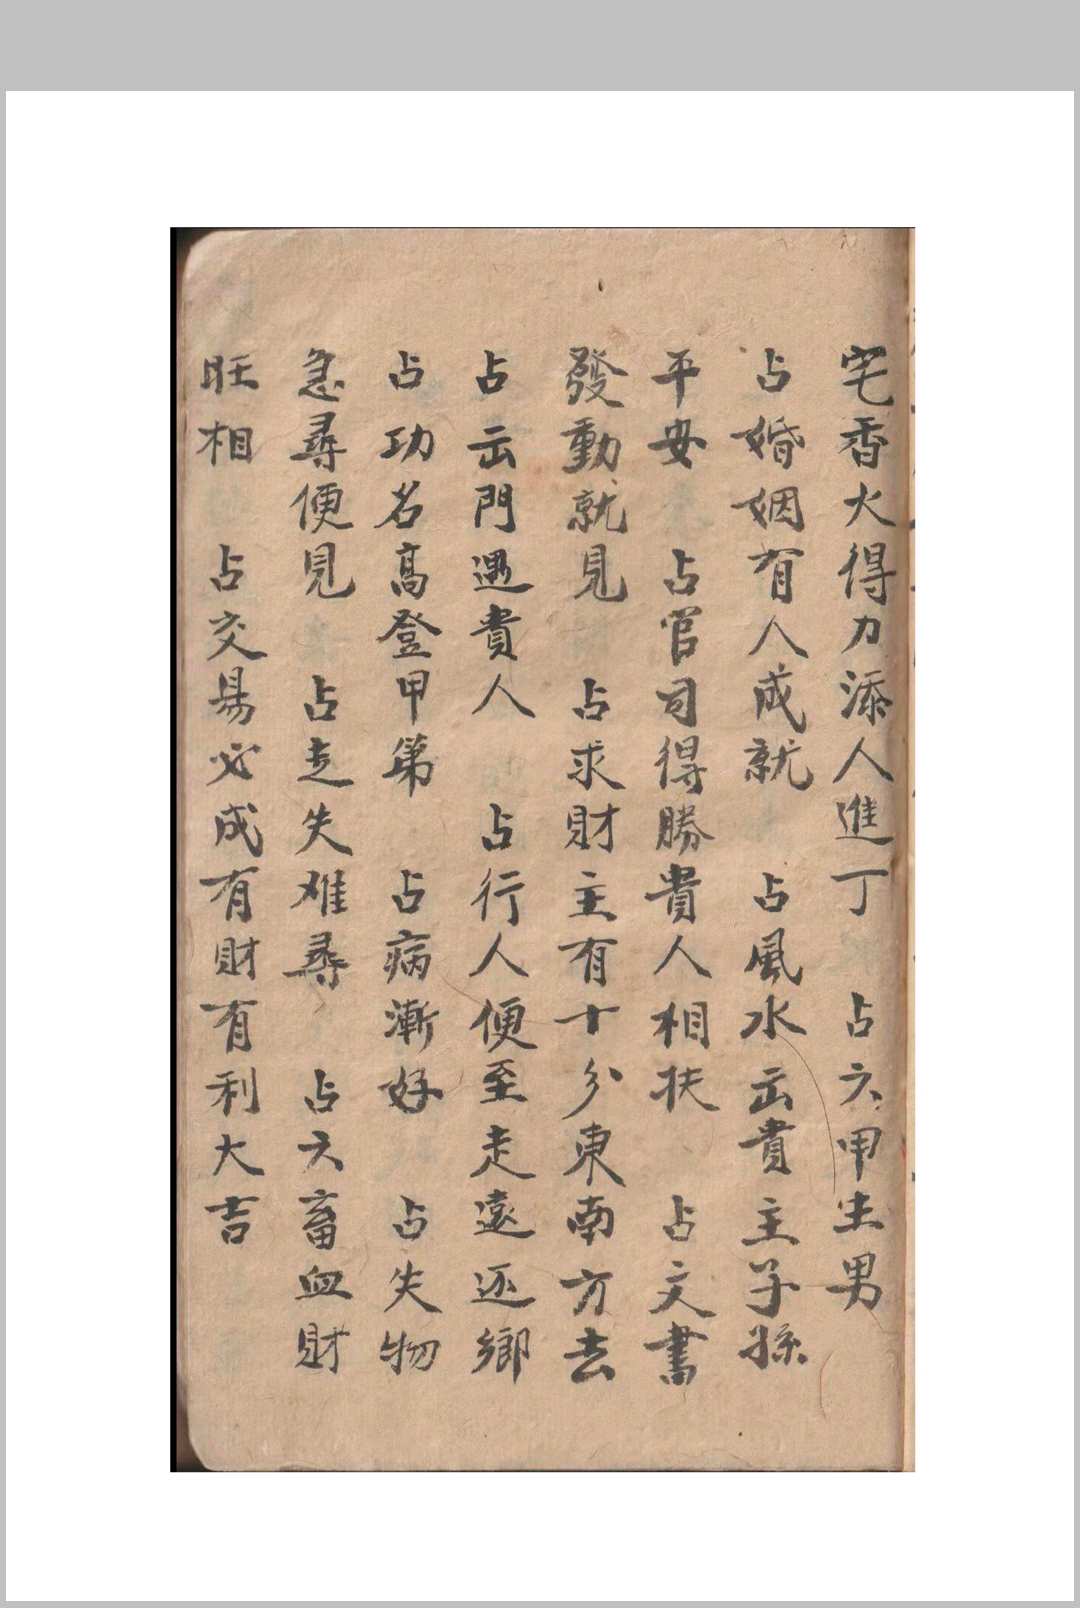 宅香火得力添人進丁　占六甲生男
占婚姻有人成就　占風水云貴主子孫
平安　占官司得勝貴人相扶　占文書
發動就見　占求財主有十分東南方去
占云門遇貴人　占行人便至走遠还鄉
占功名高登甲第　占病漸好　占失物
急尋便見　占走失难尋　占六畜血財
旺相　占交易必成有財有利大吉